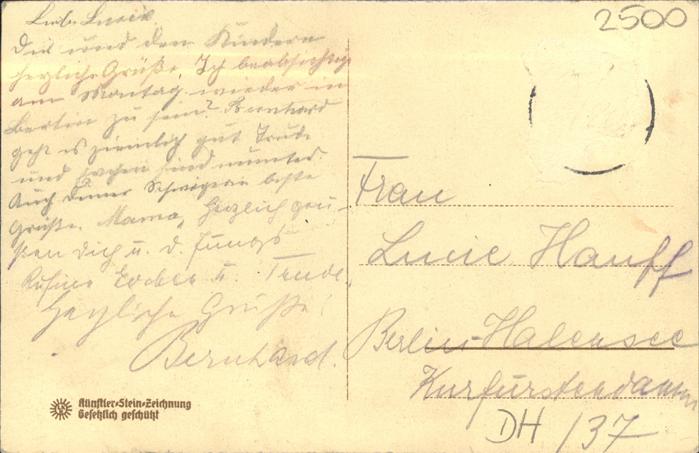 Lieb. Lucie.
Dir und den Kindern
herzliche Grüße. Ich beabsichtige
am Montag wieder in
Berlin zu sein. Bernhard
geht es ziemlich gut Trude
und sind munter.
Auch Deiner Schwägerin beste
Grüße. Mama, Herzlich grü-
ßen Dich u. d. Jungs
u. Trude.
Herzliche Grüße!
Bernhard.
Künstler-Stein-Zeichnung
Gesetzlich geschützt
2500
Frau
Lucie Hanff
Berlin-Halensee
Kurfürstendamm
DH /37